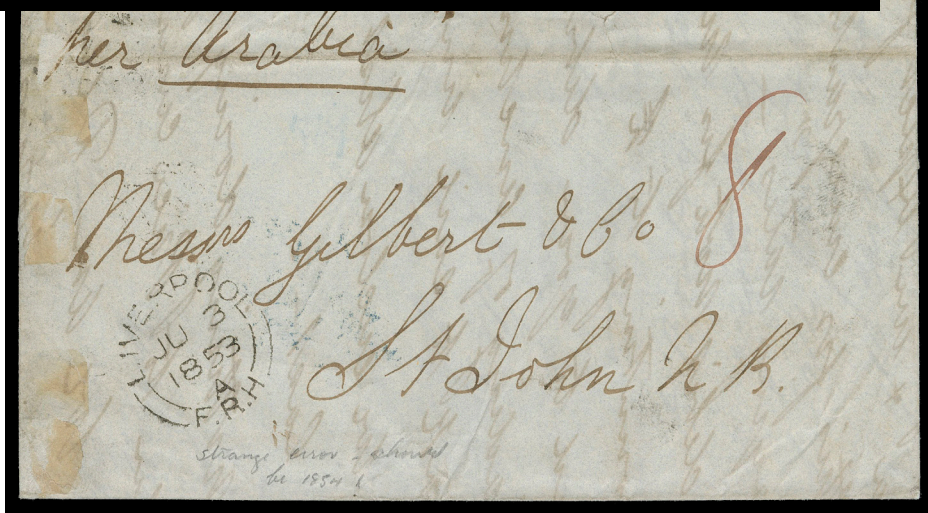 per Arabia
8
Messrs Gilbert & Co
St John N.B.
LIVERPOOL
JU 3
1853
A
F.R.H
strange error - should
be 1854